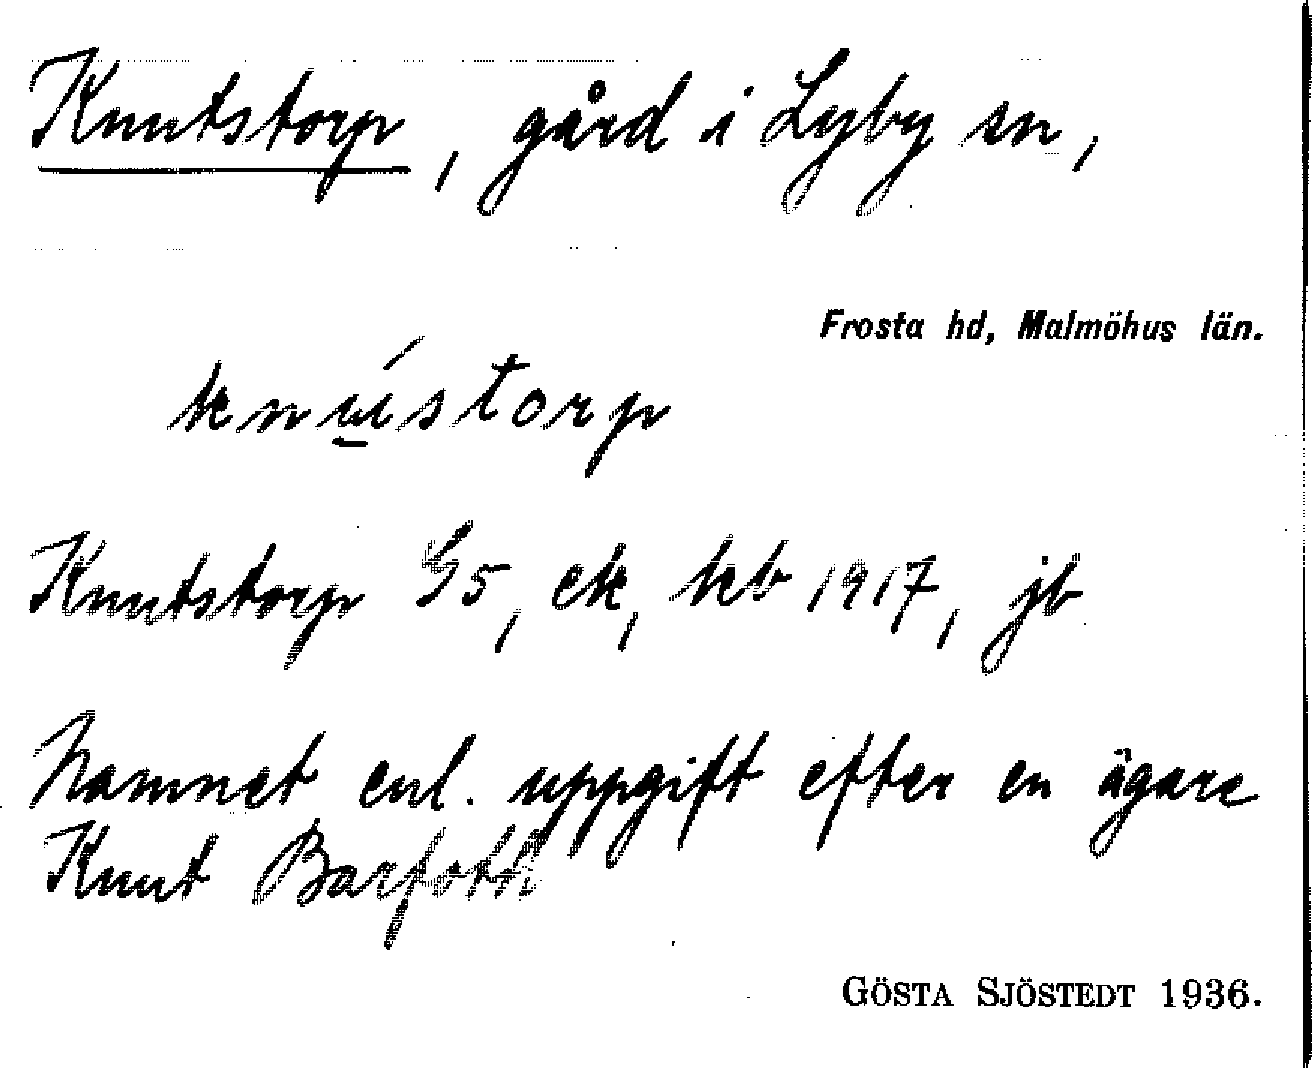 Knutstorp, gård i Lyby sn,
Frosta hd, Malmöhus län.
knústorp
Knutstorp G5, ek, kb 1917, jb
Namnet enl. uppgift efter en ägare
Knut Barfott
GÖSTA SJÖSTEDT 1936.